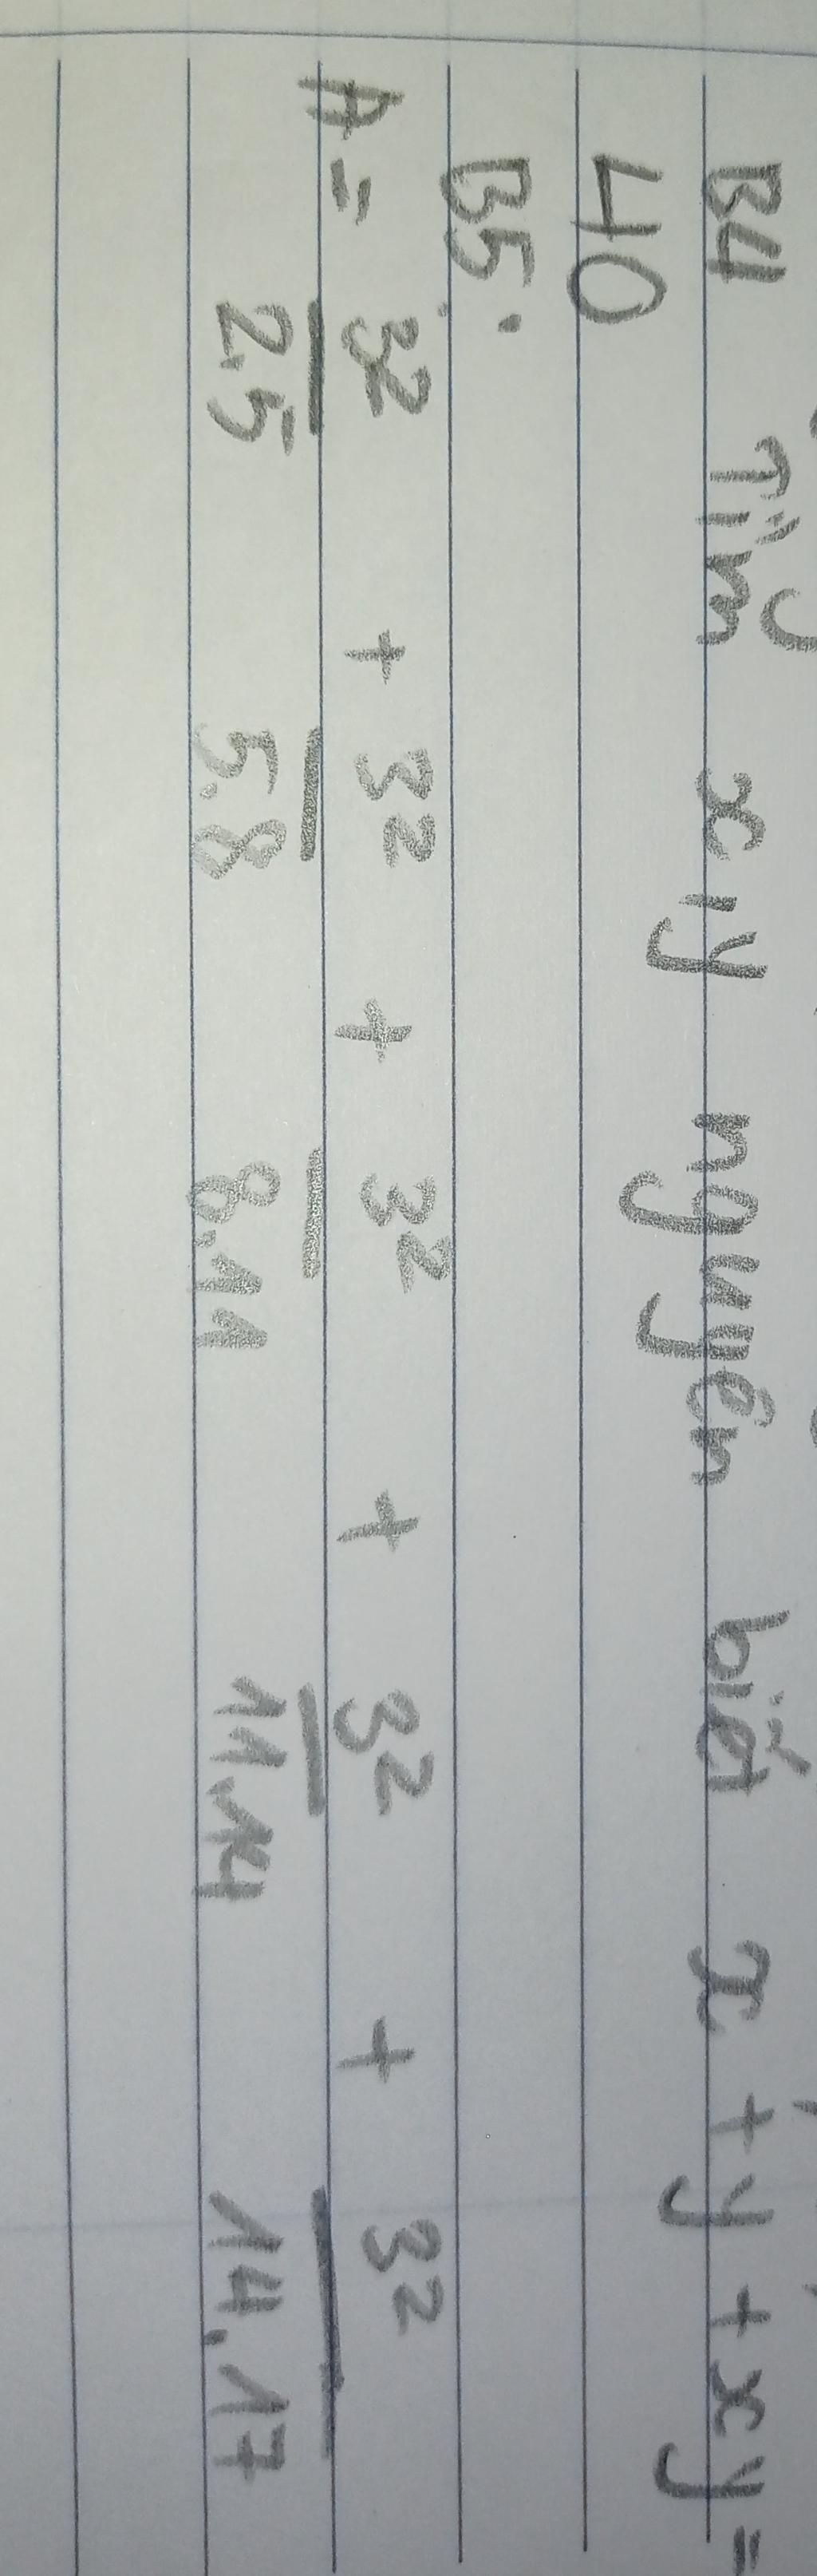 B4 Tìm x, y nguyên biết x + y + xy =
40
B5:
A = 3²/2.5 + 3²/5.8 + 3²/8.11 + 3²/11.14 + 3²/14.17